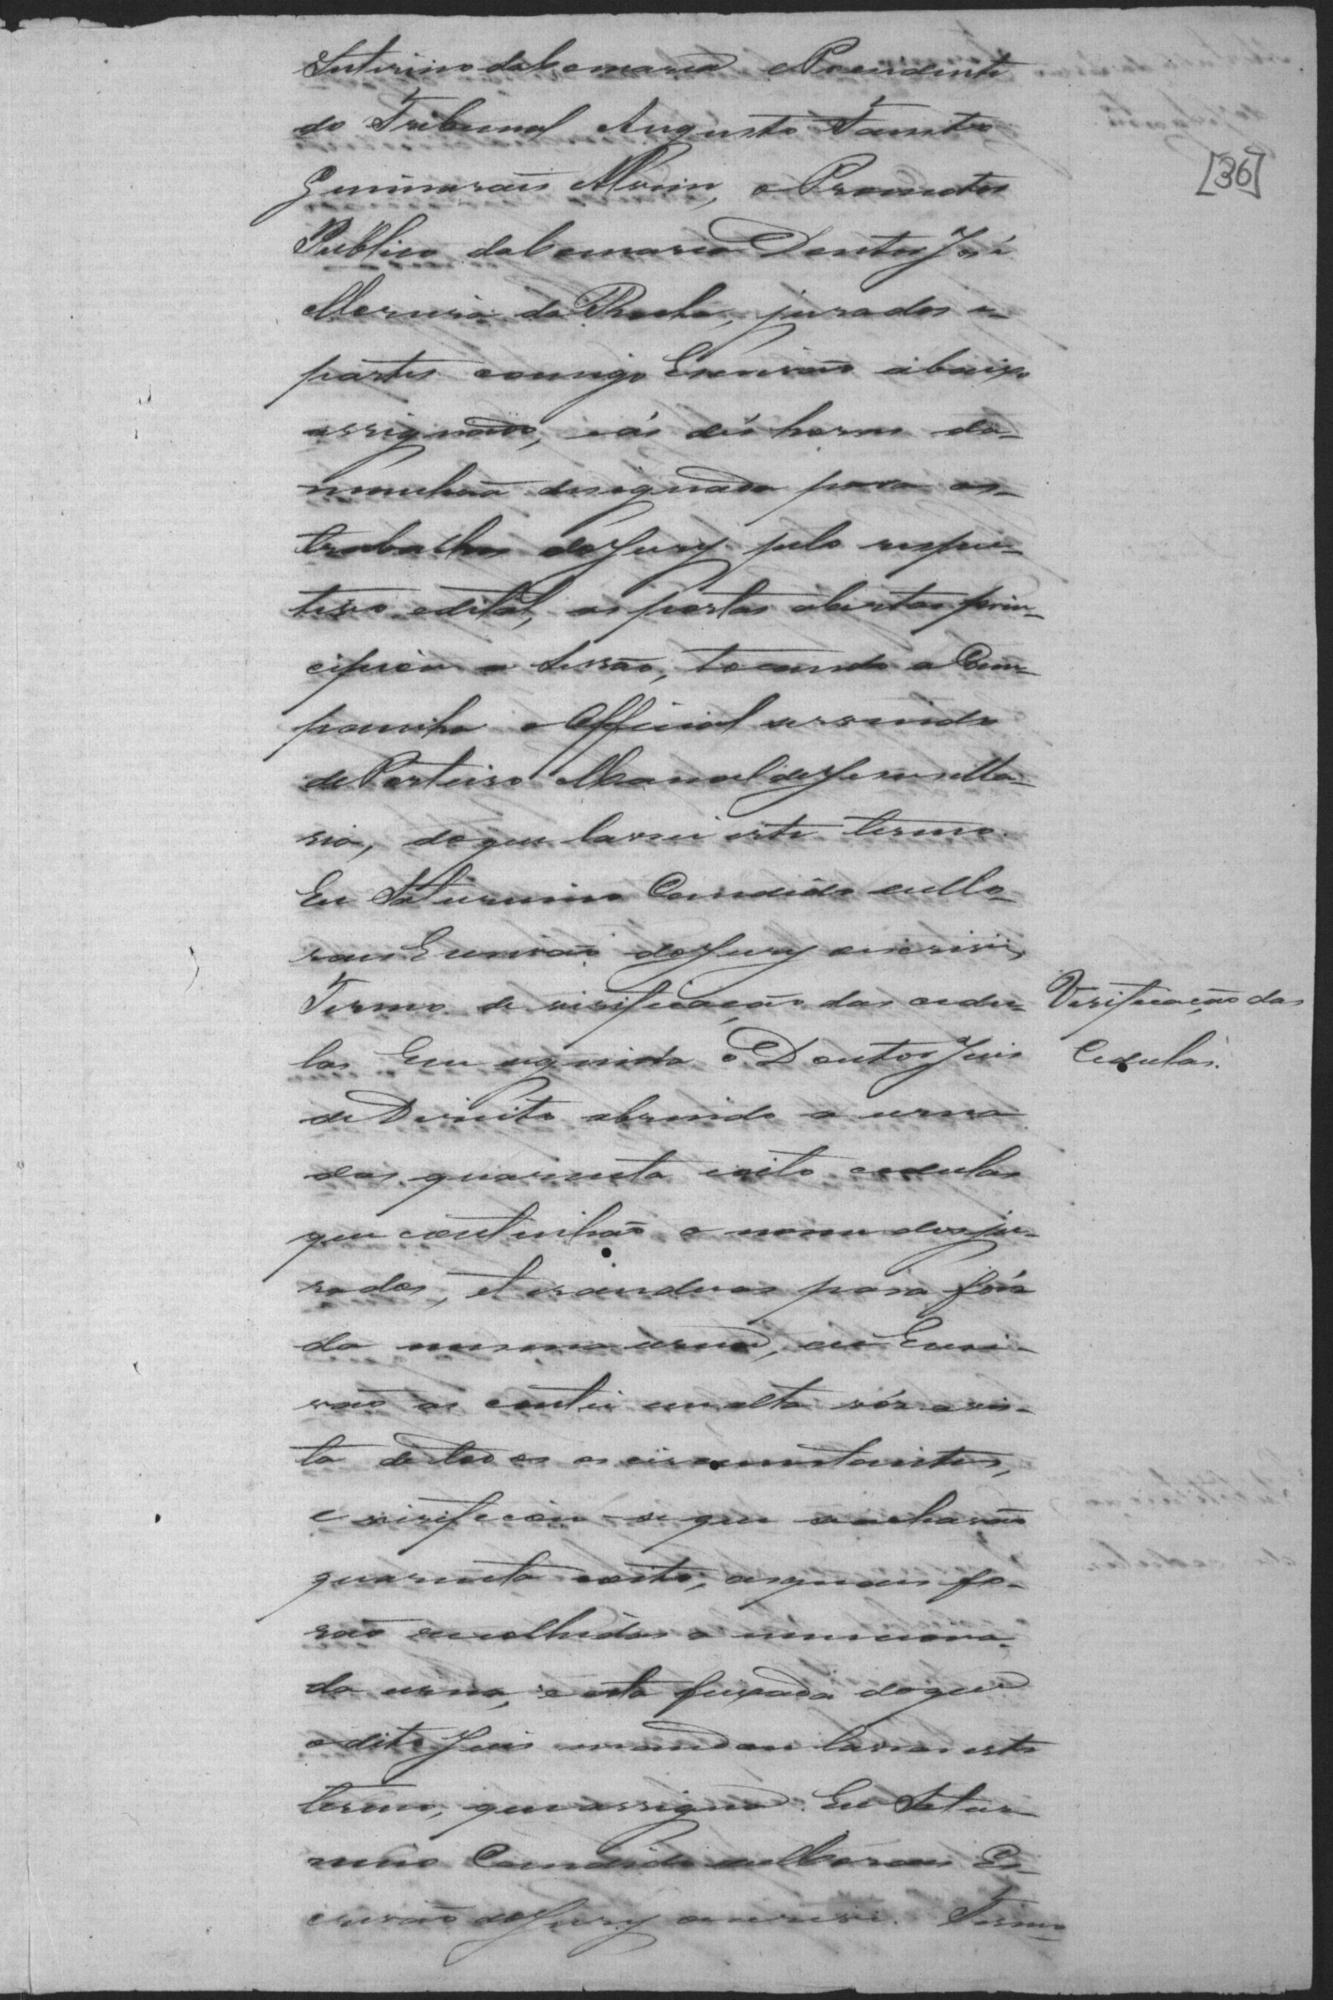 Interino da Comarca e Presidente
do Tribunal Augusto Fausto
Guimarães Alvim, o Promotor
Publico da Comarca Doutor José
Moreira da Rocha, jurados e
partes comigo Escrivão abaixo
assignado, e ás dés horas da
manhã designada para os
trabalhos do Jury pelo respec-
tivo edital, as portas abertas prin-
cipiou a sessão, tocando a Cam-
painha o Official servindo
de Porteiro Manoel de Jesus Ma-
ria, do que lavrei este termo.
Eu Saturnino Candido de Mo-
raes Escrivão do Jury escrevi,
Termo de virificação das cedu-
las Em seguida o Doutor Juis
de Direito abrindo a urna
das quarenta e oito cedulas
que continhão o nome dos ju-
rados, e tirando-as para fóra
da mesma urna, eu Escri-
vão as contei em alta vóz a vis-
ta de todos os circunstantes,
e virificou-se que se acharão
quarenta e oito, as quais fo-
rão recolhidas a mencciona-
da urna, e esta fixada do que
o dito Juis mandou lavrar este
termo, que assigna. Eu Satur-
nino Candido de Moraes Es-
crivão do Jury escrevi. Termo
[36]
Verificação das
Cedulas.